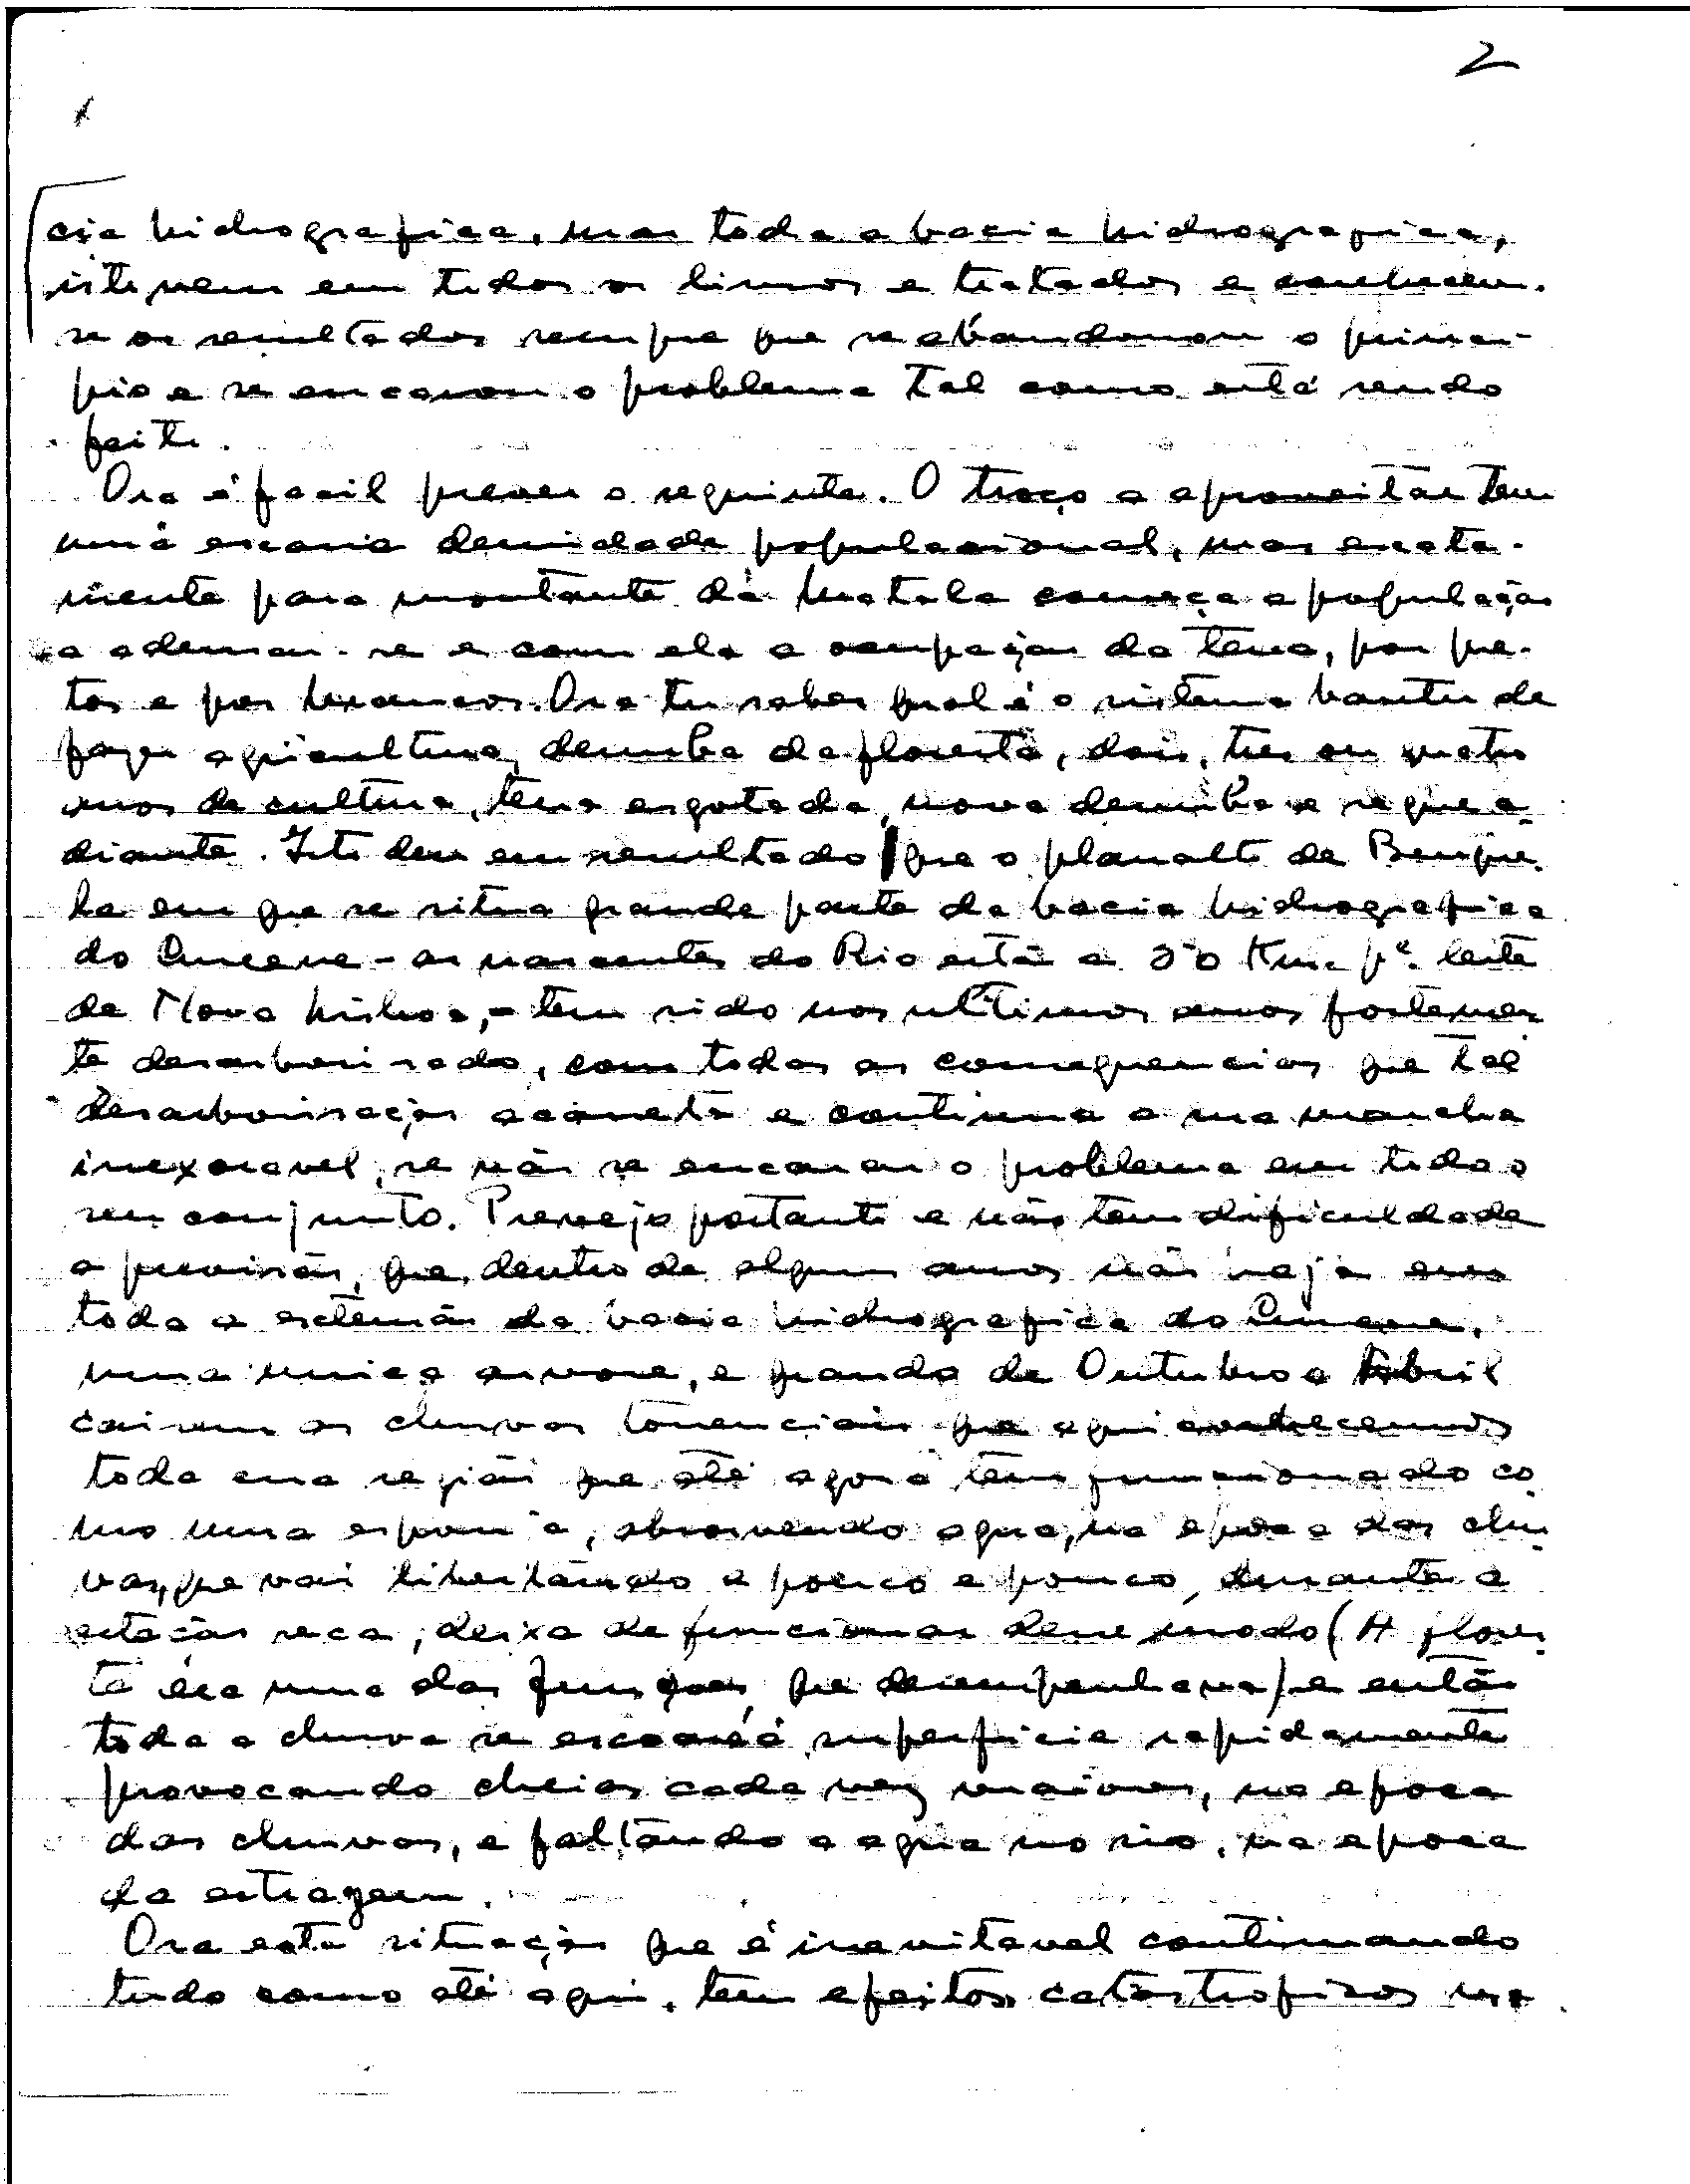 2
cia hidrografica, mas toda a bacia hidrografica,
isto vem em todos os livros e tratados e conhecem-
se os resultados sempre que se abandonou o princi-
pio e se encarou o problema tal como está sendo
feito.
Ora é facil prever o seguinte. O troço a aproveitar tem
uma escassa densidade populacional, mas exacta-
mente para montante da Matala começa a população
a adensar-se e com ela a ocupação da terra, por pre-
tos e por brancos. Ora tu sabes qual é o sistema bantu de
fazer agricultura, derruba da floresta, dois, tres ou quatro
anos de cultura, terra esgotada, nova derruba e segue a-
diante. Isto deu em resultado que o planalto de Bengue-
la em que se situa grande parte da bacia hidrografica
do Cunene - as nascentes do Rio estão a Km. pª. leste
de Nova Lisboa, - tem sido nos ultimos anos fortemen-
te desarborisado, com todas as consequencias que tal
desarborisação acarreta e continua a sua marcha
inexoravel, se não se encarar o problema em todo o
seu conjunto. Prevejo portanto e não tem dificuldade
a previsão, que, dentro de alguns anos não haja em
toda a extensão da bacia hidrografica do Cunene,
uma unica arvore, e quando de Outubro a Abril
cairem as chuvas torrenciais que aqui conhecemos
toda essa região que até agora tem funcionado co
mo uma esponja, absorvendo agua, na epoca das chu
vas, que vai libertando a pouco e pouco, durante a
estação seca, deixa de funcionar desse modo (A flores
ta era uma das funções que desempenhava) e então
toda a chuva se escoará á superficie rapidamente
provocando cheias cada vez maiores, na epoca
das chuvas, e faltando a agua no rio, na epoca
da estiagem.
Ora esta situação que é inevitavel continuando
tudo como até aqui, tem efeitos catastroficos na